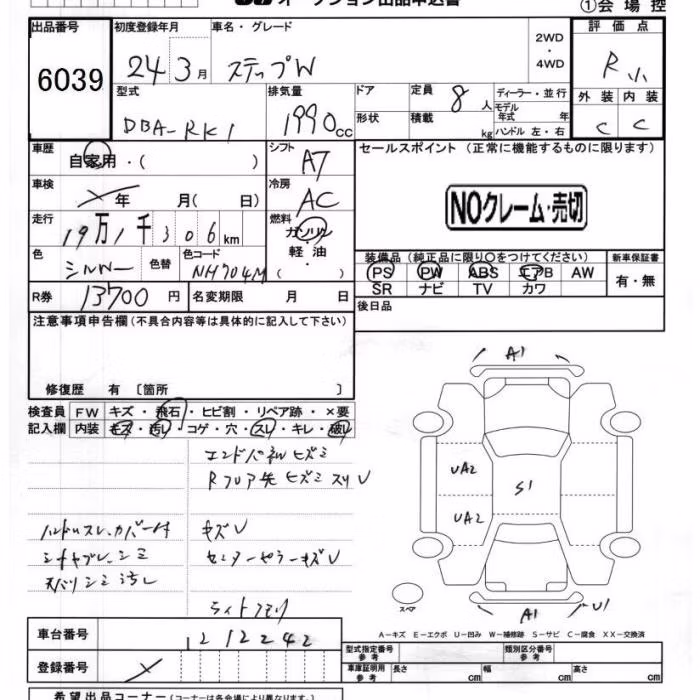 オークション出品申込書 ①会場控
出品番号 初度登録年月 車名・グレード 2WD・4WD 評価点
6039 24 3月 ステップW R 小
型式 排気量 ドア 定員 8人 ディーラー・並行 外装 内装
DBA-RK1 1990cc 形状 積載 kg モデル年式 年 ハンドル 左・右 C C
車歴 自家用・( ) シフト A7 セールスポイント(正常に機能するものに限ります)
車検 年 月( 日) 冷房 AC NOクレーム・売切
走行 19万1千306km 燃料 ガソリン
軽油
( )
色 シルバー 色替 色コード NH704M 装備品(純正品に限り○をつけてください) 新車保証書
PS PW ABS エアB AW 有・無
SR ナビ TV カワ
R券 13700円 名変期限 月 日 後日品
注意事項申告欄(不具合内容等は具体的に記入して下さい)
修復歴 有 [箇所 ]
検査員 FW キズ・飛石・ヒビ割・リペア跡・×要
記入欄 内装 キズ・汚レ・コゲ・穴・スレ・キレ・破レ
エンドパネルヒズミ
Rフロア先ヒズミスリU
ハンドルスレ、カバー付 キズU
シミ センターピラーキズU
天バリシミ汚レ
A1
UA2
S1
UA2
スペア
A1 U1
A-キズ E-エクボ U-凹み W-補修跡 S-サビ C-腐食 XX-交換済
車台番号 1212242
登録番号
型式指定番号 参考 類別区分番号 参考
車庫証明用 参考 長さ cm 幅 cm 高さ cm
希望出品コーナー(コーナーは各会場により異なります)